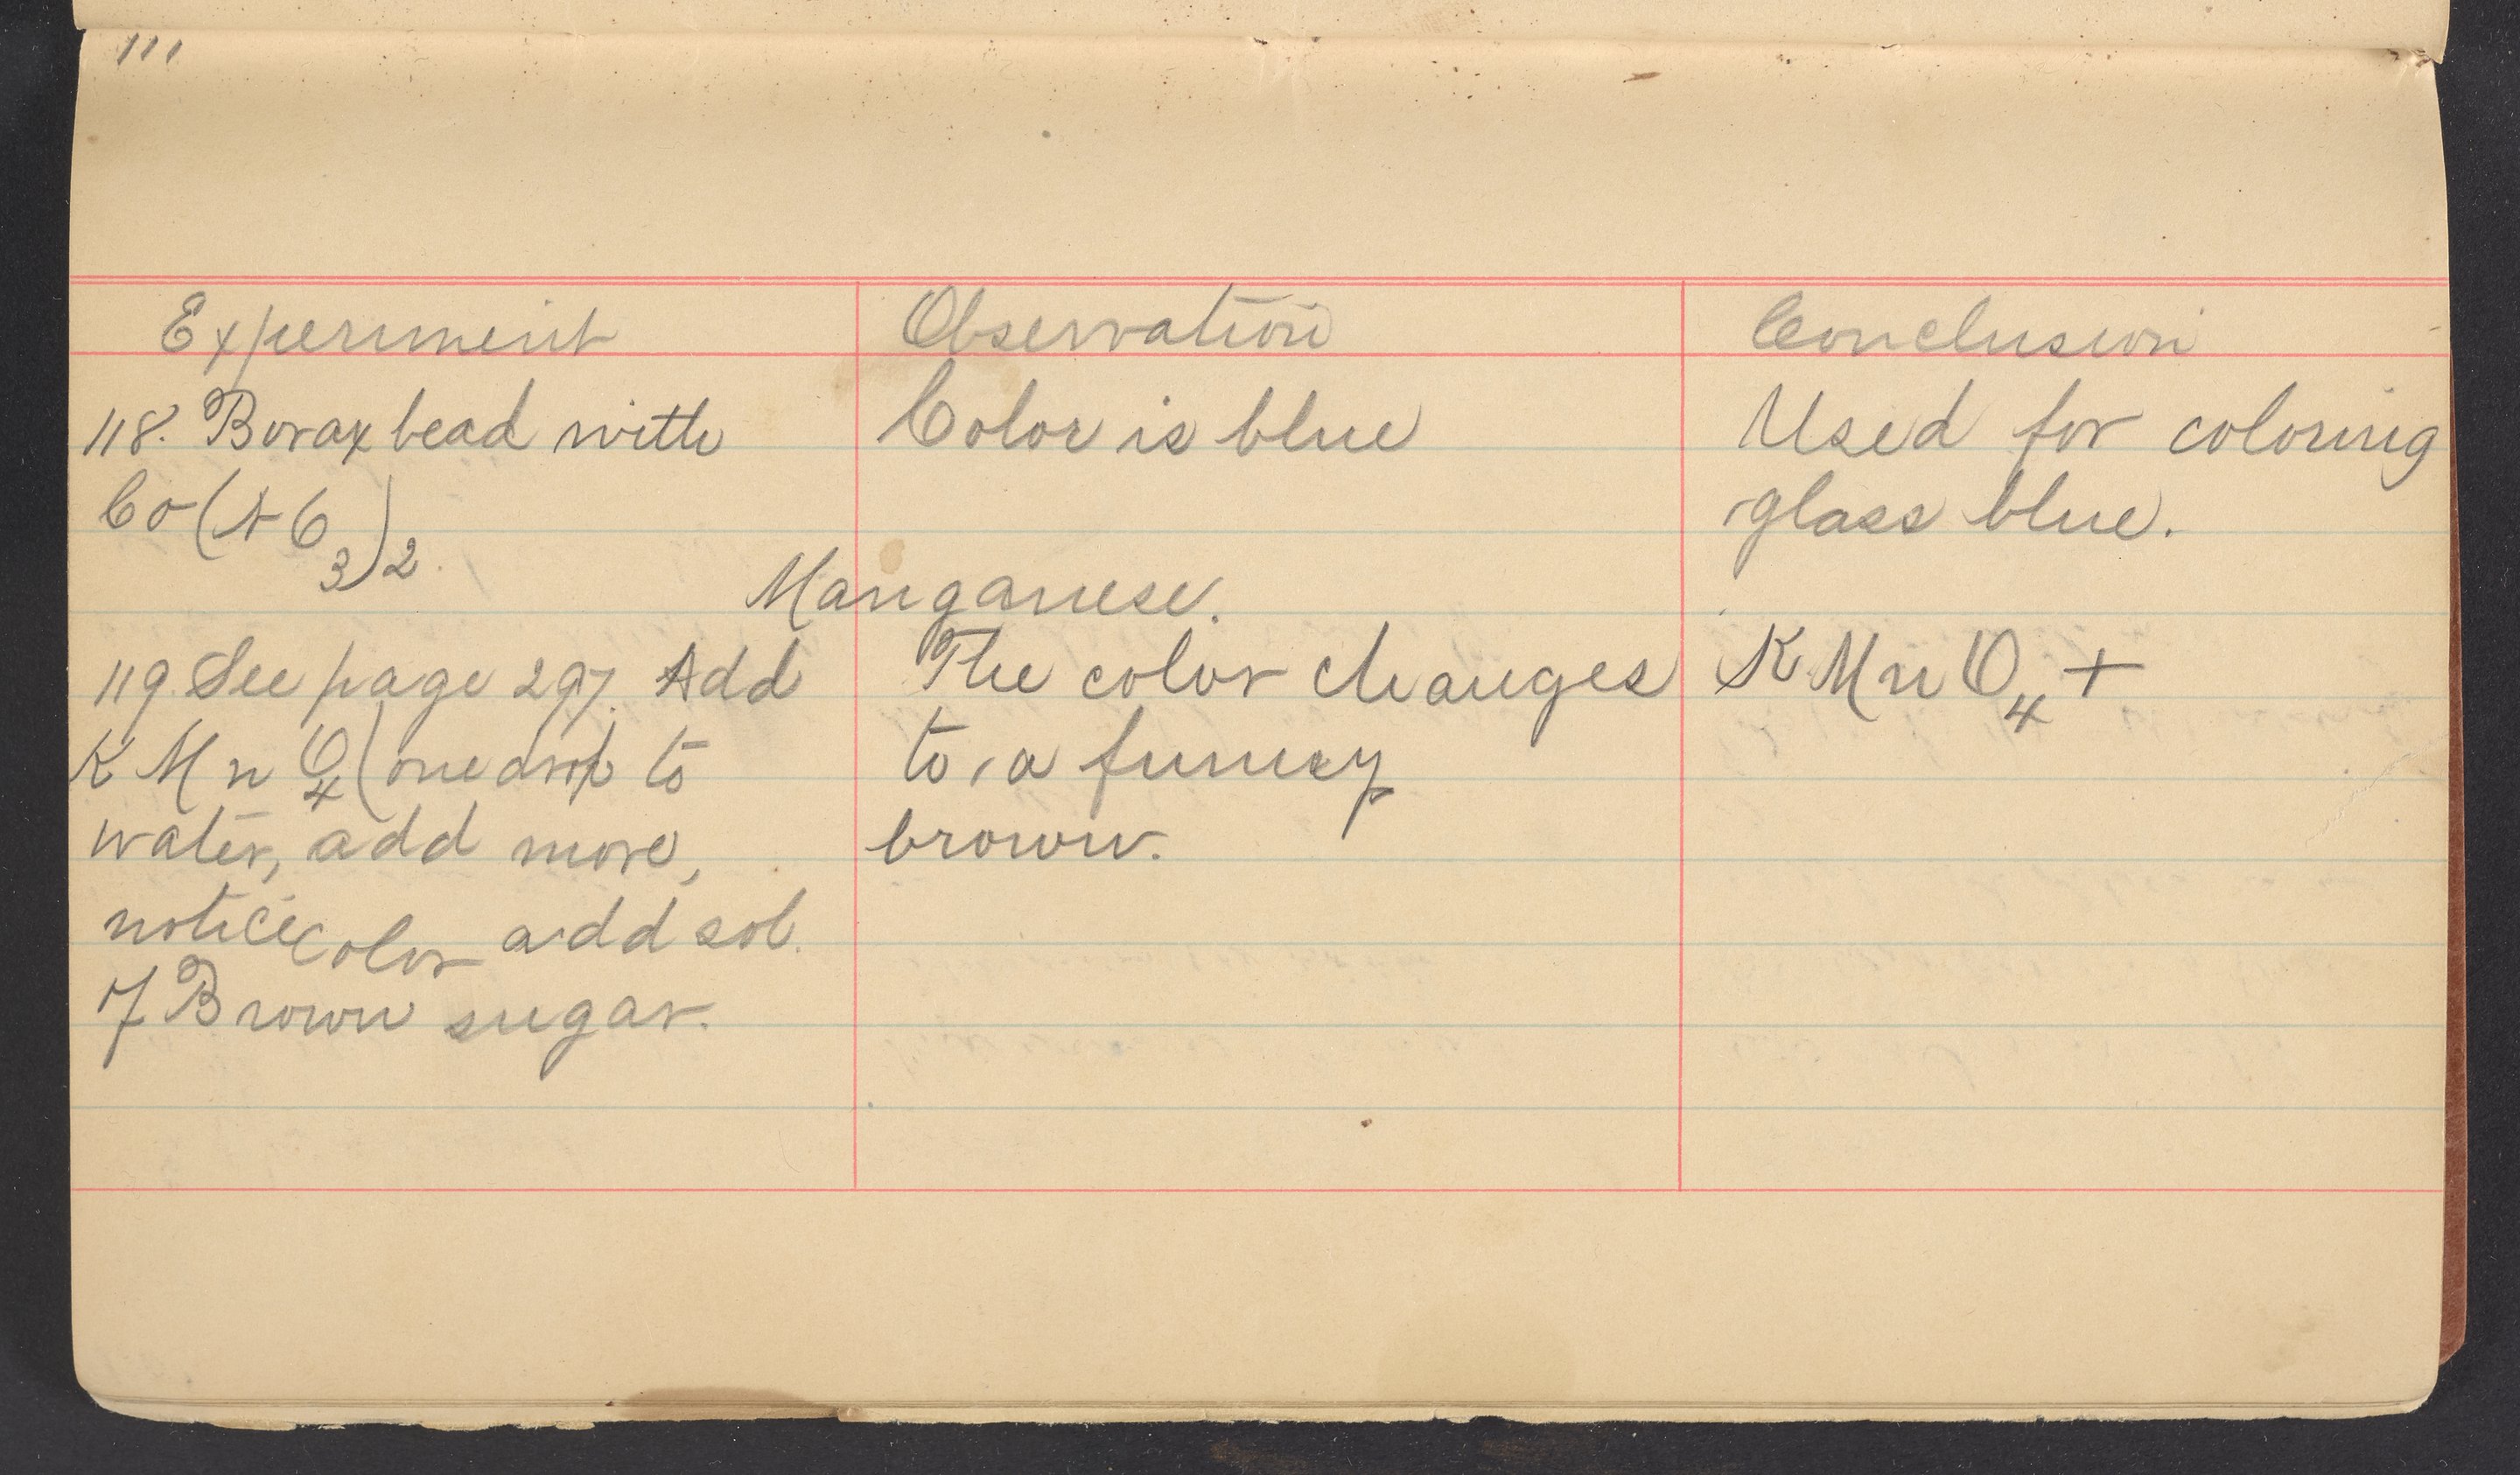 111
Experiment
Observation
Conclusion
118. Borax bead with
Co(NO3)2.
Color is blue
Used for coloring
glass blue.
Manganese.
119. See page 297. Add
KMnO4 (one drop to
water, add more,
notice color add sol.
of Brown sugar.
The color changes
to a funny
brown.
KMnO4 +